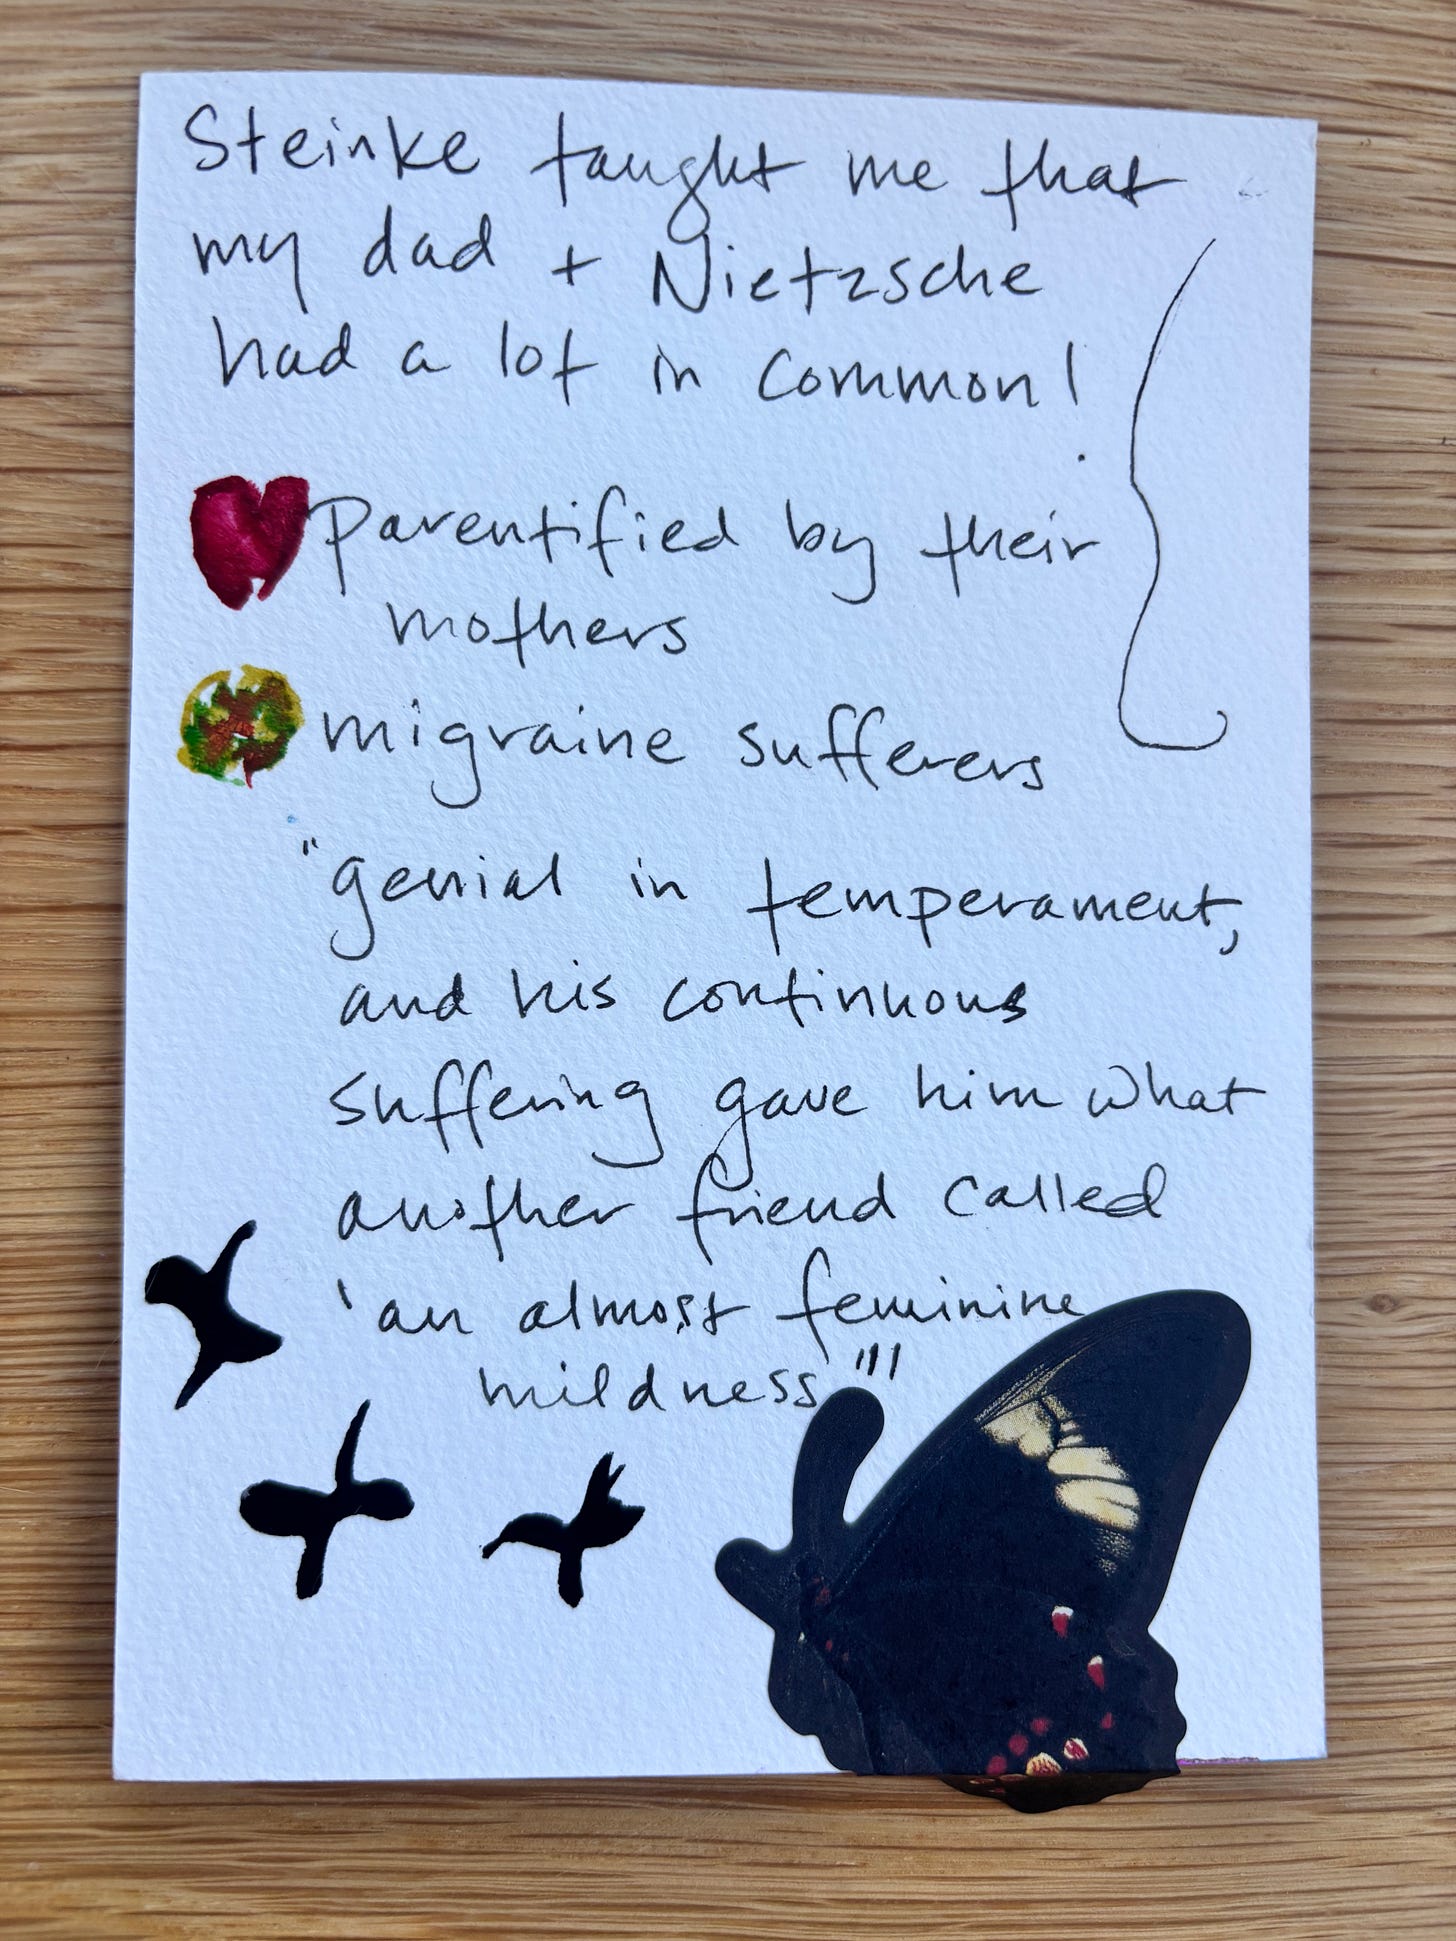 Steinke taught me that
my dad + Nietzsche
had a lot in common!
parentified by their
mothers
migraine sufferers
"genial in temperament,
and his continuous
suffering gave him what
another friend called
'an almost feminine
mildness'"